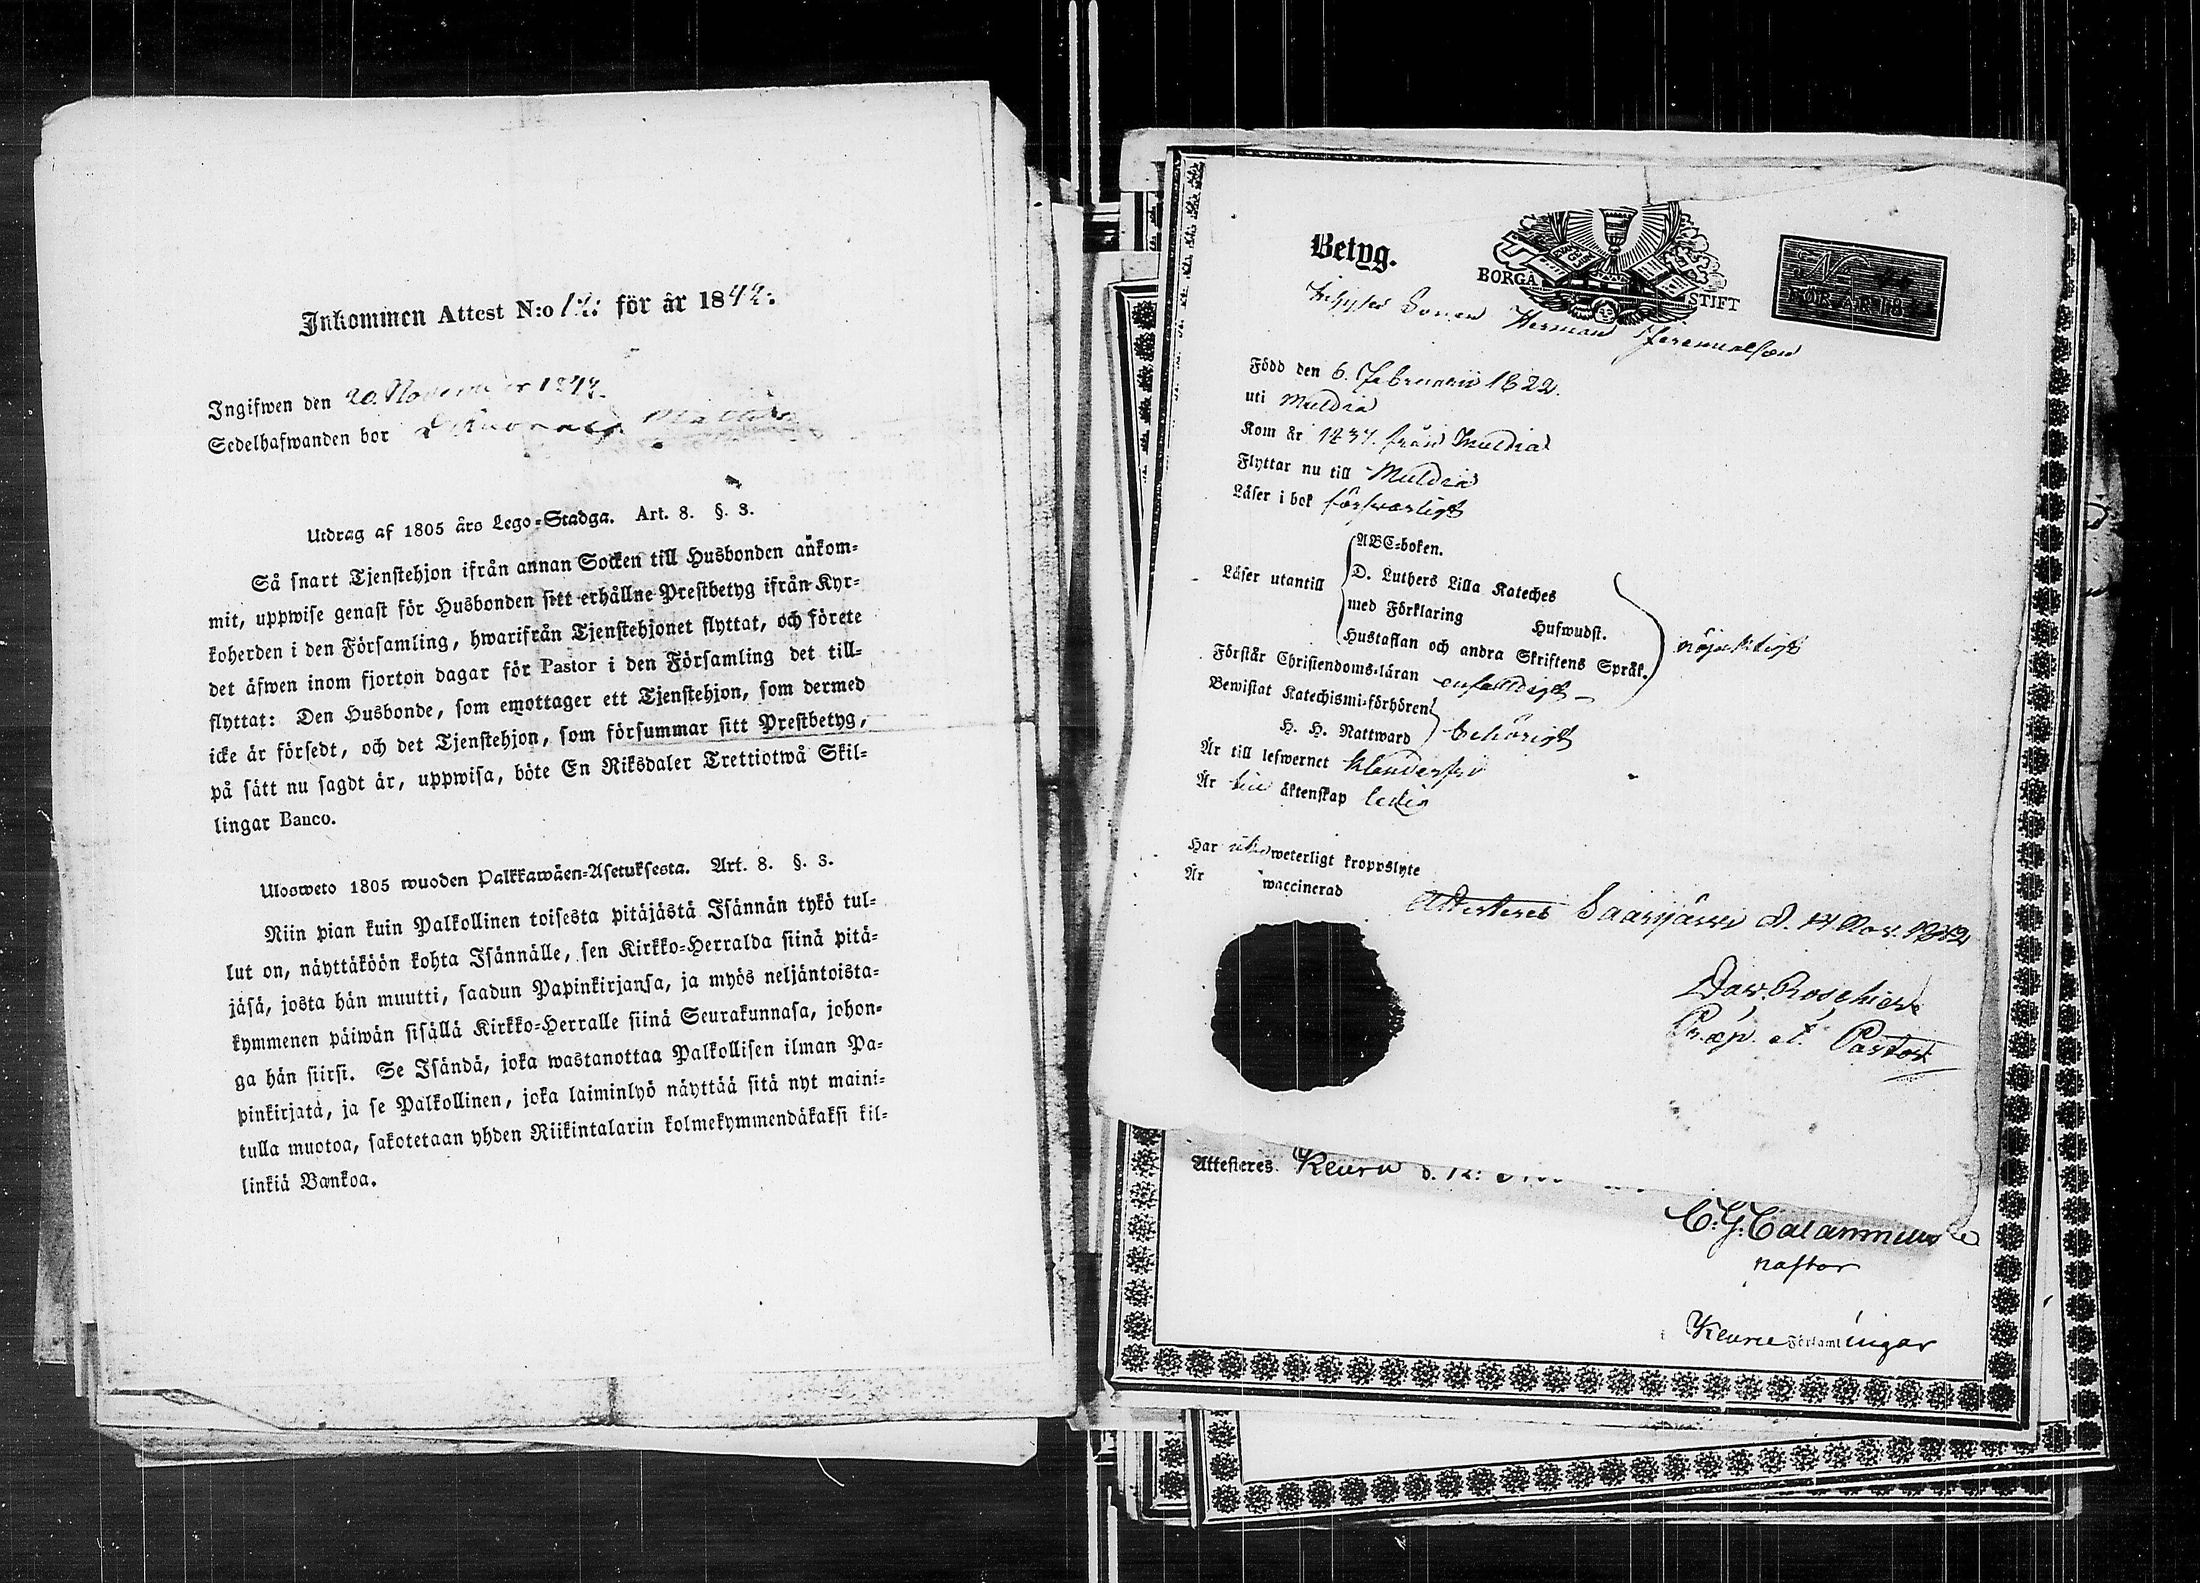 Inkommen Attest N:o 12: för år 1842:
Ingifwen den 20. November 1842.
Sedelhafwanden bor
Utdrag af 1805 års Lego-Stadga. Art. 8. §. 3.
Så snart Tjenstehjon ifrån annan Socken till Husbonden ankom-
mit, uppwise genast för Husbonden sitt erhållne Prestbetyg ifrån Kyr-
koherden i den Församling, hwarifrån Tjenstehjonet flyttat, och förete
det äfwen inom fjorton dagar för Pastor i den Församling det till-
flyttat: Den Husbonde, som emottager ett Tjenstehjon, som dermed
icke är försedt, och det Tjenstehjon, som försummar sitt Prestbetyg,
på sätt nu sagdt är, uppwisa, böte En Riksdaler Trettiotwå Skil-
lingar Banco.
Ulosweto 1805 wuoden Palkkawäen-Asetuksesta. Art. 8. §. 3.
Niin pian kuin Palkollinen toisesta pitäjästä Isännän tykö tul-
lut on, näyttäköön kohta Isännälle, sen Kirkko-Herralda siinä pitä-
jäsä, josta hän muutti, saadun Papinkirjansa, ja myös neljäntoista-
kymmenen päiwän sisällä Kirkko-Herralle siinä Seurakunnasa, johon-
ga hän siirsi. Se Isändä, joka wastanottaa Palkollisen ilman Pa-
pinkirjatä, ja se Palkollinen, joka laiminlyö näyttää sitä nyt maini-
tulla muotoa, sakotetaan yhden Riikintalarin kolmekymmendäkaksi kil-
linkiä Bankoa.
Betyg.
BORGÅ STIFT
N
FÖR ÅR 18
Sonen Herman Jeremiaeson
Född den 6. Februarii 1822.
uti Muldia
Kom år 1837. från Muldia
Flyttar nu till Muldia
Läser i bok försvarligt
Läser utantill
ABC-boken.
D. Luthers Lilla Kateches
med Förklaring Hufwudst.
Hustaflan och andra Skriftens Språk.
nöjaktigt
Förstår Christendoms-läran enfaldigt
Bewistat Katechismi-förhören
H. H. Nattward behörigt
Är till lefwernet klanderfri
Är till äktenskap ledig
Har weterligt kroppslyte
Är waccinerad
Attesteres Saarijärvi d. 14 Nov. 1842
Dav. Roschier
Præp. et Pastor
Attesteres. Keuru d. 12:
C. G. Calamnius
pastor
Keuru Församlingar